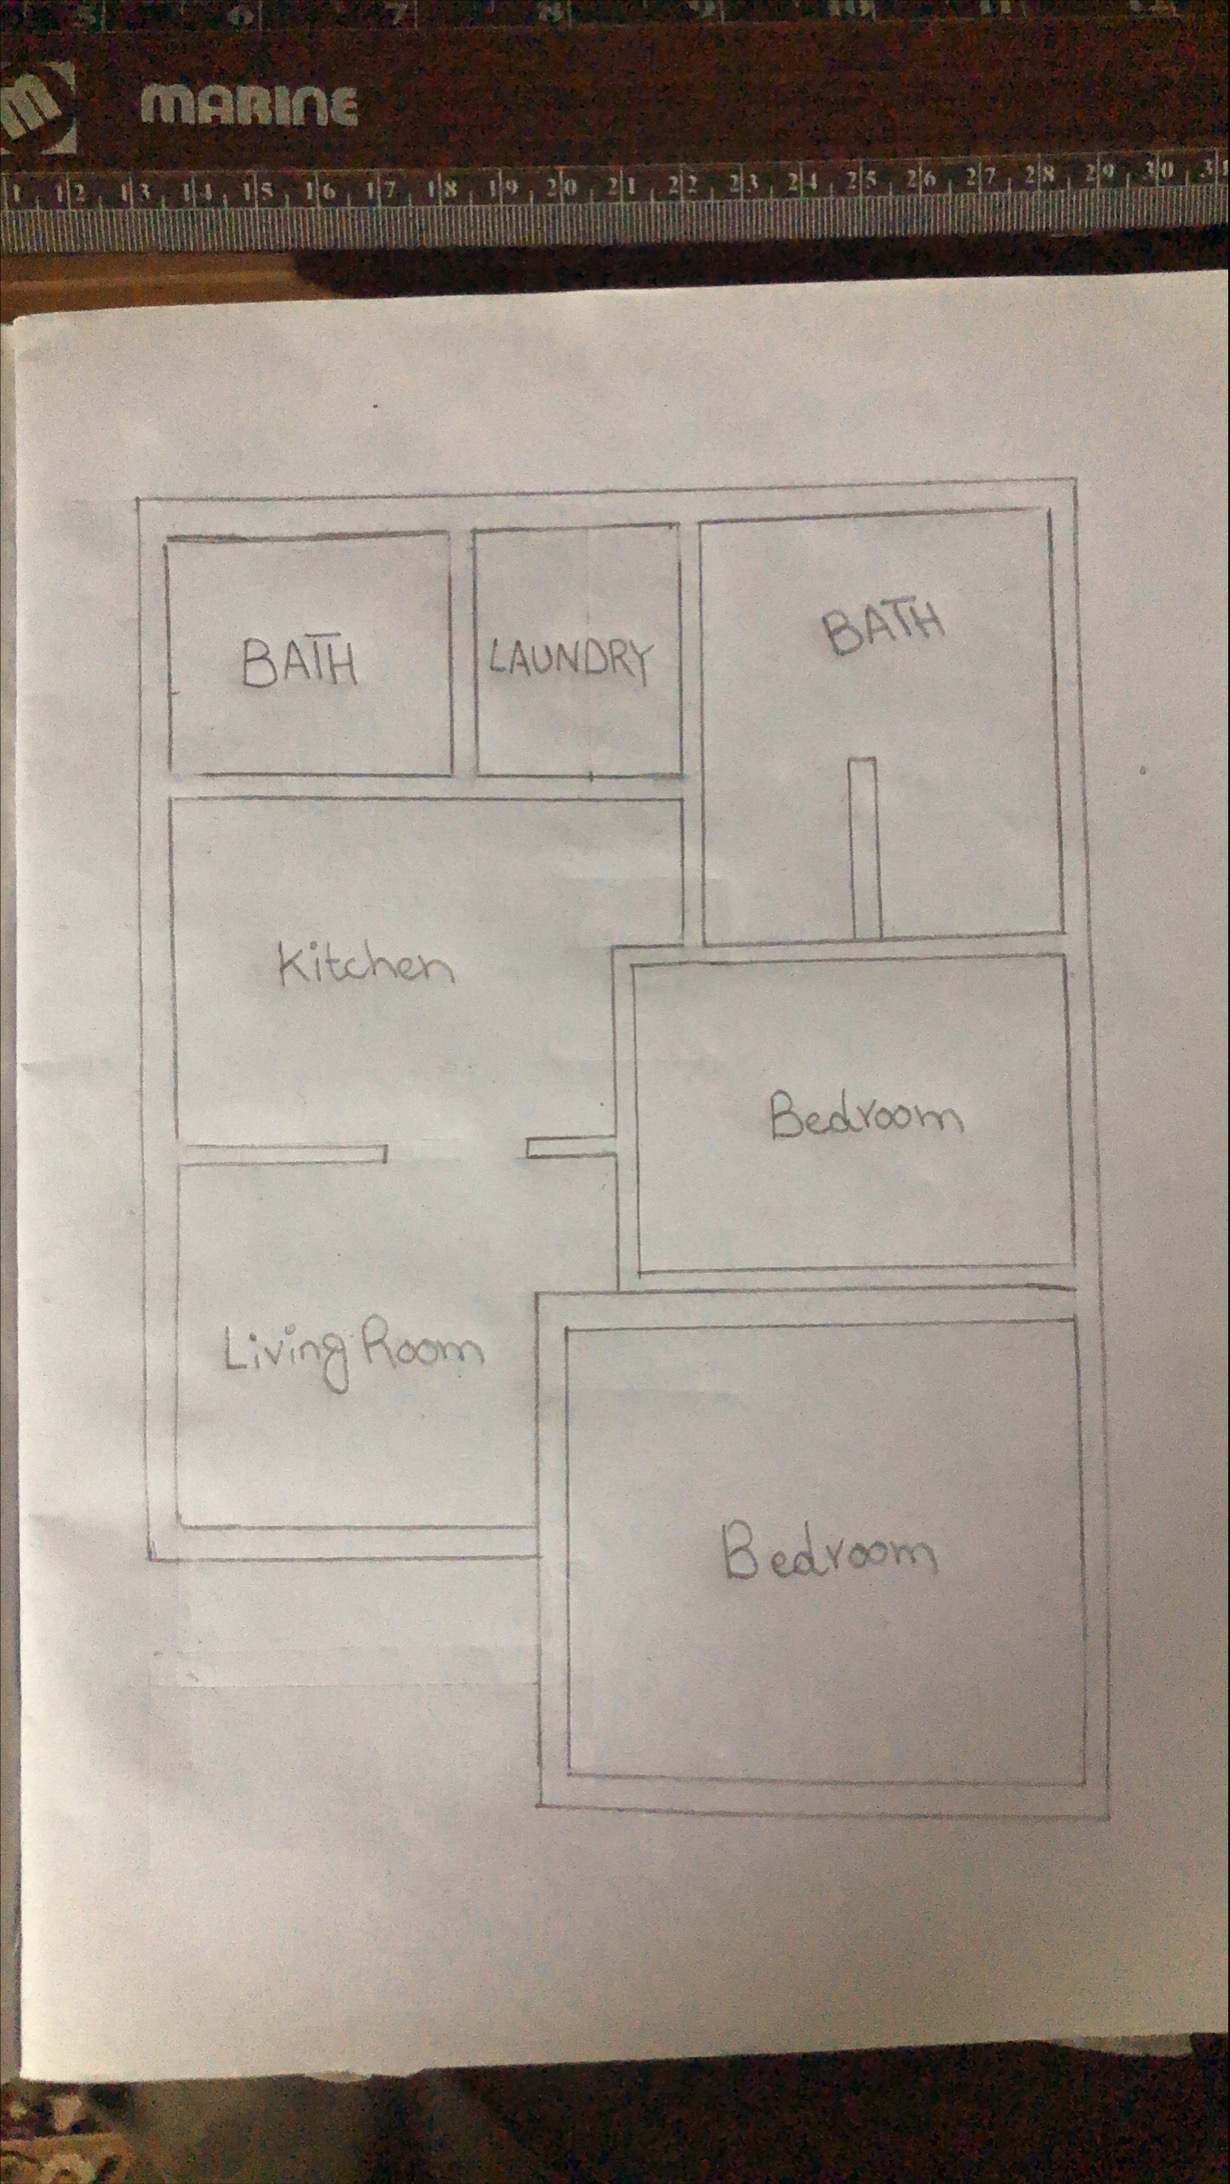 5 6 7 8 9 10 11
MARINE
12 13 14 15 16 17 18 19 20 21 22 23 24 25 26 27 28 29 30
BATH
LAUNDRY
BATH
Kitchen
Bedroom
Living Room
Bedroom